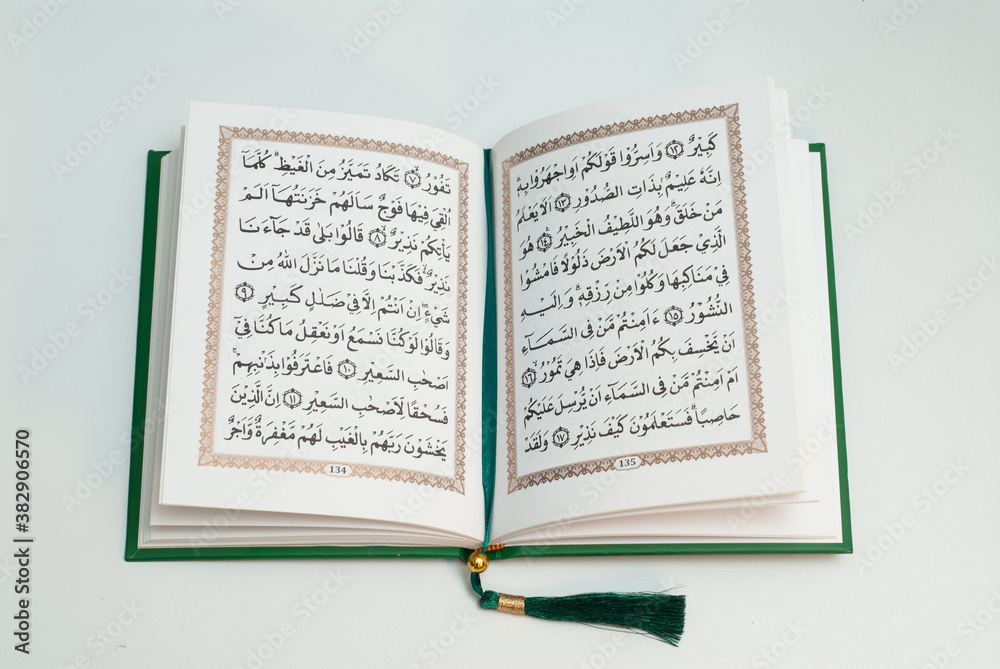 تَفُوْرُۙ ٧ تَكَادُ تَمَيَّزُ مِنَ الْغَيْظِۗ كُلَّمَآ
اُلْقِيَ فِيْهَا فَوْجٌ سَاَلَهُمْ خَزَنَتُهَآ اَلَمْ
يَأْتِكُمْ نَذِيْرٌ ٨ قَالُوْا بَلٰى قَدْ جَآءَنَا
نَذِيْرٌ ەۙ فَكَذَّبْنَا وَقُلْنَا مَا نَزَّلَ اللّٰهُ مِنْ
شَيْءٍۖ اِنْ اَنْتُمْ اِلَّا فِيْ ضَلٰلٍ كَبِيْرٍ ٩
وَقَالُوْا لَوْ كُنَّا نَسْمَعُ اَوْ نَعْقِلُ مَا كُنَّا فِيْٓ
اَصْحٰبِ السَّعِيْرِ ١٠ فَاعْتَرَفُوْا بِذَنْۢبِهِمْۚ
فَسُحْقًا لِّاَصْحٰبِ السَّعِيْرِ ١١ اِنَّ الَّذِيْنَ
يَخْشَوْنَ رَبَّهُمْ بِالْغَيْبِ لَهُمْ مَّغْفِرَةٌ وَّاَجْرٌ
134
كَبِيْرٌ ١٢ وَاَسِرُّوْا قَوْلَكُمْ اَوِ اجْهَرُوْا بِهٖۗ
اِنَّهٗ عَلِيْمٌۢ بِذَاتِ الصُّدُوْرِ ١٣ اَلَا يَعْلَمُ
مَنْ خَلَقَۗ وَهُوَ اللَّطِيْفُ الْخَبِيْرُ ١٤ هُوَ
الَّذِيْ جَعَلَ لَكُمُ الْاَرْضَ ذَلُوْلًا فَامْشُوْا
فِيْ مَنَاكِبِهَا وَكُلُوْا مِنْ رِّزْقِهٖۗ وَاِلَيْهِ
النُّشُوْرُ ١٥ ءَاَمِنْتُمْ مَّنْ فِى السَّمَآءِ
اَنْ يَّخْسِفَ بِكُمُ الْاَرْضَ فَاِذَا هِيَ تَمُوْرُۙ ١٦
اَمْ اَمِنْتُمْ مَّنْ فِى السَّمَآءِ اَنْ يُّرْسِلَ عَلَيْكُمْ
حَاصِبًاۗ فَسَتَعْلَمُوْنَ كَيْفَ نَذِيْرِ ١٧ وَلَقَدْ
135
Adobe Stock | #382906570